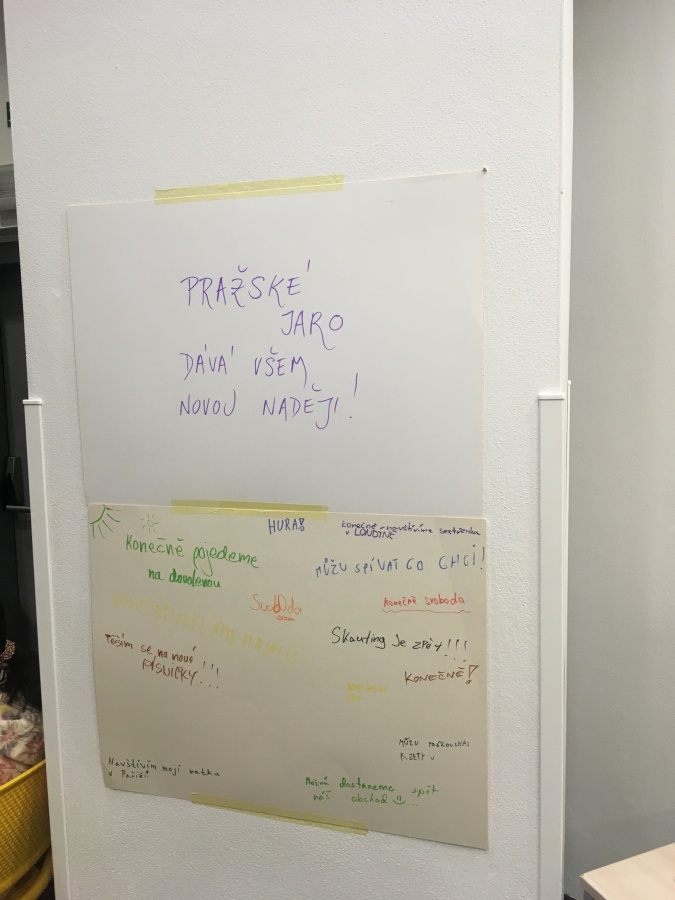 PRAŽSKÉ
JARO
DÁVÁ VŠEM
NOVOU NADĚJI!
HURAŠ
Konečně navštívíme sestřenku
v LONDÝNĚ
Konečně pojedeme
na dovolenou
MŮŽU SPÍVAT CO CHCI!
Svoboda
Konečně svoboda
Skauting je zpět!!!
Těším se na nové
PÍSNIČKY!!!
KONEČNĚ!
MŮŽU
Navštívím moji matku
v Paříži
Možná dostaneme spět
náš obchod